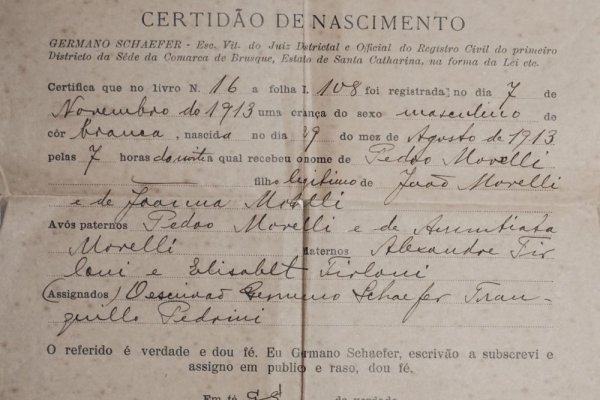 CERTIDÃO DE NASCIMENTO
GERMANO SCHAEFER - Esc. Vit. do Juiz Districtal e Official do Registro Civil do primeiro
Districto da Séde da Comarca de Brusque, Estado de Santa Catharina, na forma da Lei etc.
Certifica que no livro N. 16 a folha l. 108 foi registrada no dia 7 de
Novembro do 1913 uma criança do sexo masculino de
côr branca, nascida no dia 19 do mez de Agosto de 1913
pelas 7 horas da noite a qual recebeu o nome de Pedro Morelli
filho legitimo de João Morelli
e de Joanna Morelli
Avós paternos Pedro Morelli e de Annuntiata
Morelli Maternos Alexandre Tir
loni e Elisabet Tirloni
(Assignados) O escrivão Germano Schaefer Tran-
quillo Pedrini
O referido é verdade e dou fé. Eu Germano Schaefer, escrivão a subscrevi e
assigno em publico e raso, dou fé.
Em té da verdade